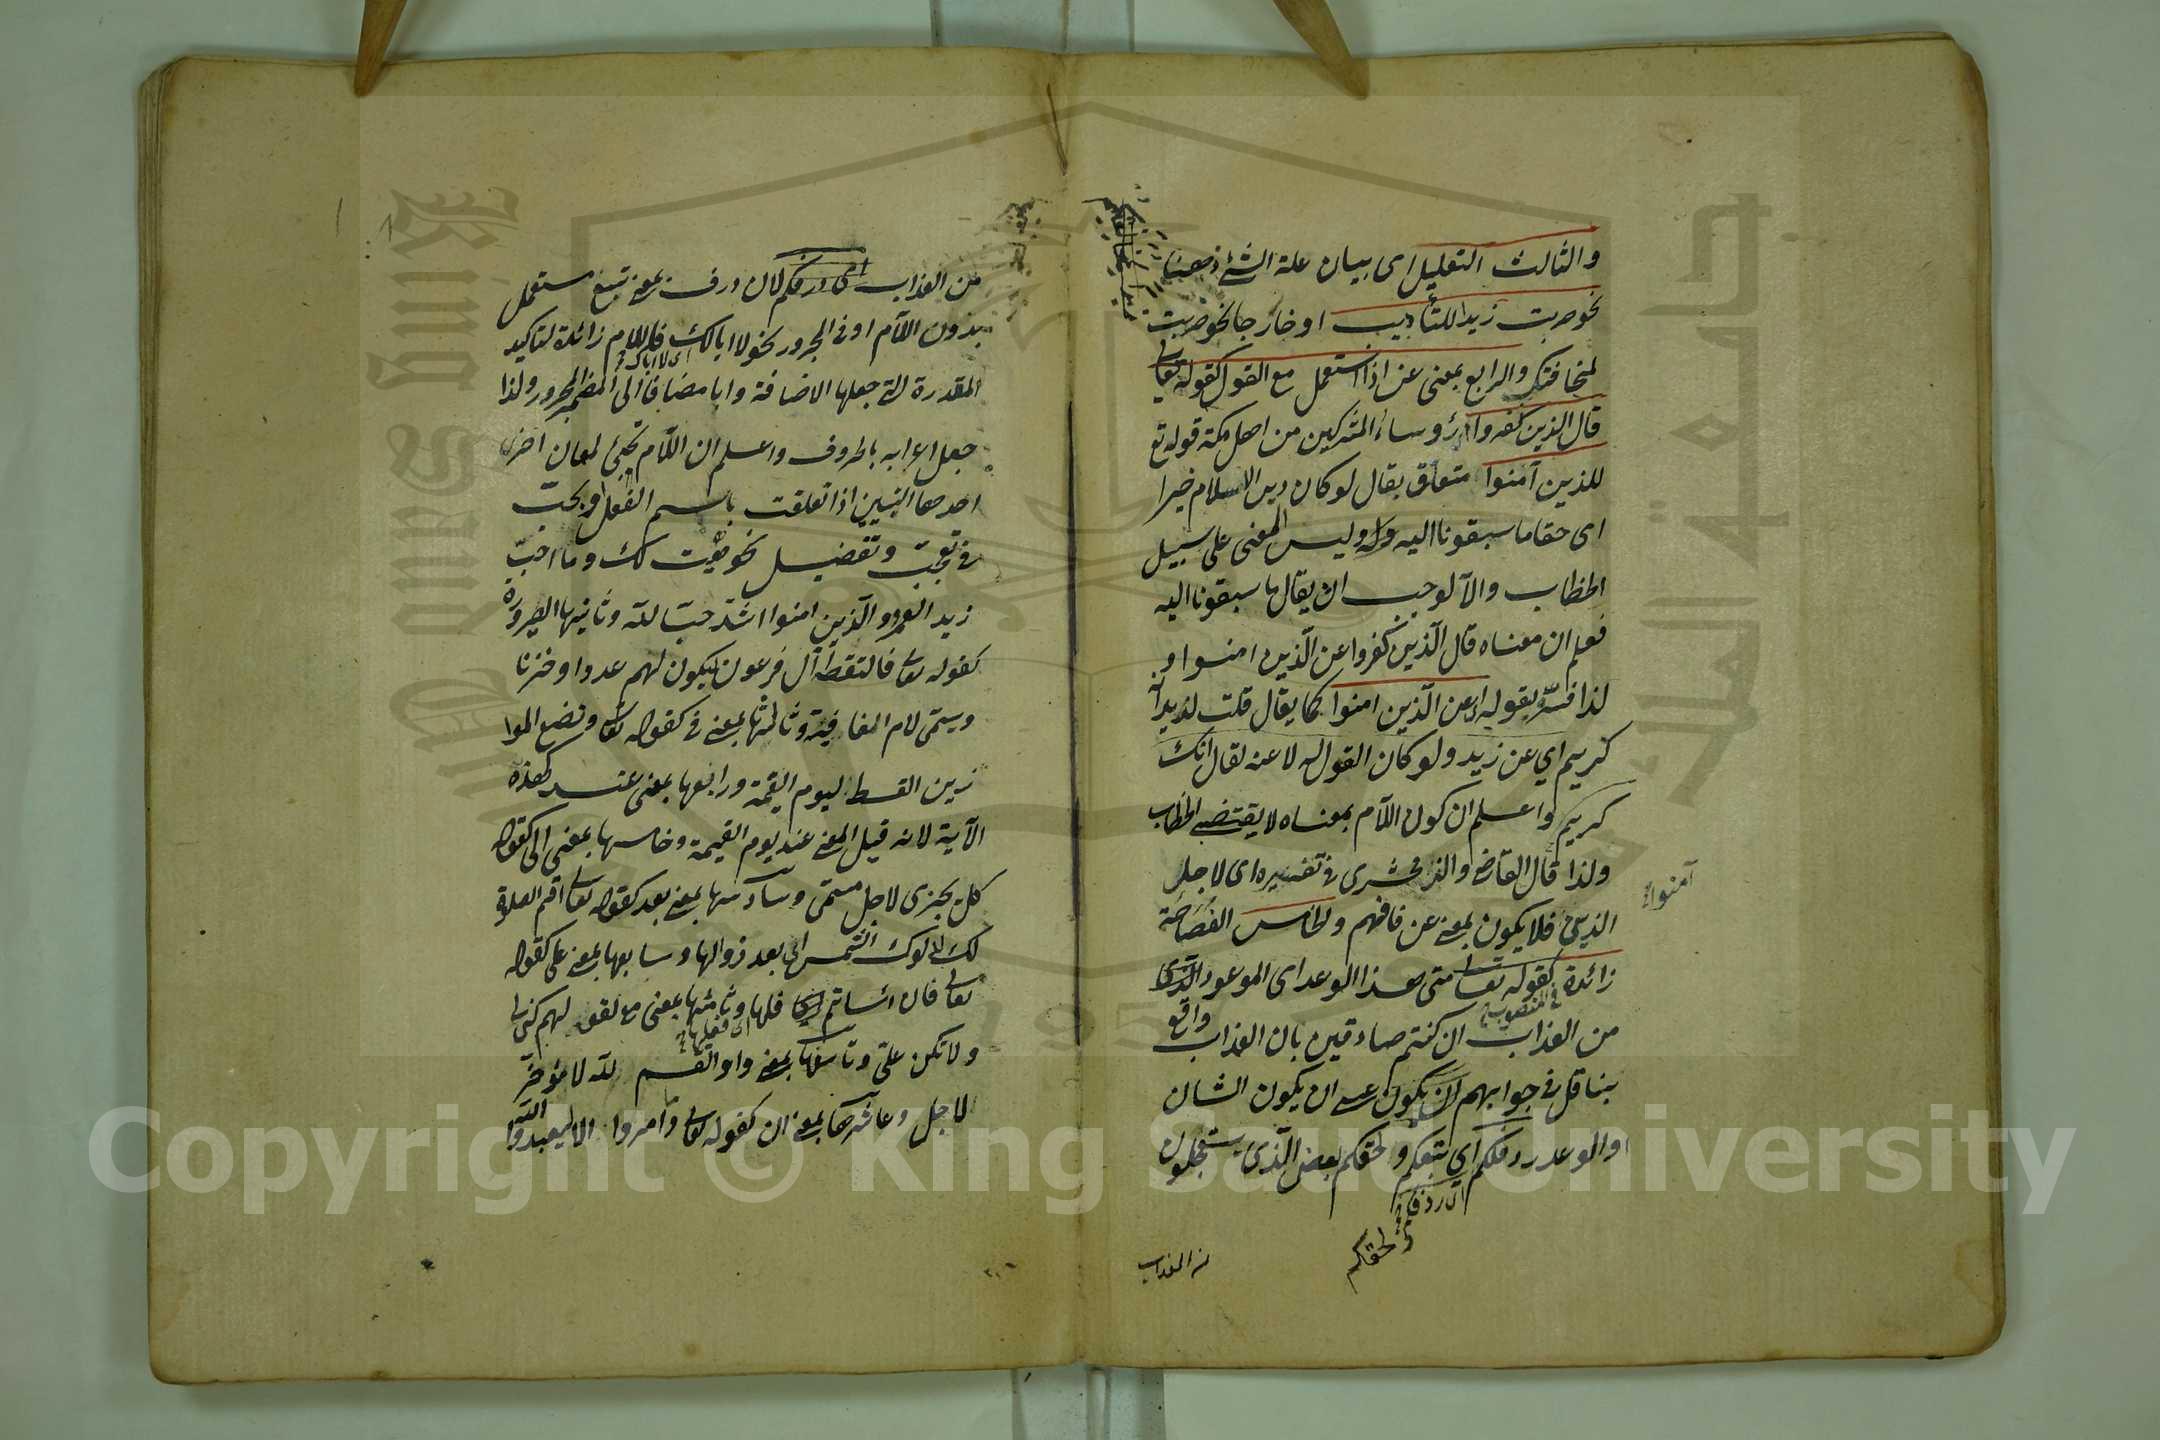 والثالث التعليل اى بيان علة الشئ ذهنا
نحو ضربت زيدا للتأديب او خارجا نحو خرجت
لمخافتك والرابع بمعنى عن اذا استعمل مع القول كقوله تعالى
قال الذين كفروا رؤوساء المشركين من اهل مكة قوله تع
للذين آمنوا متعلق بقال لو كان دين الاسلام خيرا
اى حقا ما سبقونا اليه وليس المعنى على سبيل
الخطاب والا لوجب ان يقال ما سبقونا اليه
فعلم ان معناه قال الذين كفروا عن الذين امنوا و
لذا فسره بقوله اى عن الذين امنوا كما يقال قلت لزيد انه
كريم اي عن زيد ولو كان القول له لا عنه لقال انك
كريم واعلم ان كون اللام بمعناه لا يقتضى الخطاب
ولذا قال القاضى والزمخشرى فى تفسيره اى لاجل
الذين فلا يكون بمعنى عن فافهم والخامس
آمنوا
زائدة كقوله تعالى متى هذا الوعد اى الموعود الذى
من العذاب ان كنتم صادقين بان العذاب واقع
بنا قل فى جوابهم ان يكون عسى ان يكون الشان
والوعد ردفكم اي تبعكم ولحقكم بعض الذى تستعجلون
لحقكم
من العذاب
من العذاب اى ردفكم لان ردف بمعنى تبع مستعمل
بدون اللام او فى المجرور نحو لا ابا لك فاللام زائدة لتاكيد
اى لا اباك
المقدرة التى جعلها الاضافة وابا مضافا الى المضمر المجرور ولذا
جعل اعرابه بالحروف واعلم ان اللام تجئ لمعان اخرى
احدها التبيين اذا تعلقت باسم الفعل او بحب
فى تعجب وتفضيل نحو هيت لك وما احب
زيدا لعمرو والذين امنوا اشد حبا لله وثانيها الصيرورة
كقوله تعالى فالتقطه آل فرعون ليكون لهم عدوا وحزنا
ويسمى لام العاقبة وثالثها بمعنى فى كقوله تعالى ونضع الموا
زين القسط ليوم القيمة ورابعها بمعنى عند كهذه
الآية لانه قيل المعنى عند يوم القيمة وخامسها بمعنى الى كقوله
كل يجرى لاجل مسمى وسادسها بمعنى بعد كقوله تعالى اقم الصلوة
لدلوك الشمس اى بعد زوالها وسابعها بمعنى على كقوله
تعالى فان اسأتم فلها وثامنها بمعنى مع لقو لهم كن لى
اى فعليها
ولا تكن علي وتاسعها بمعنى واو القسم لله لا يؤخر
لاجل وعاشرها بمعنى ان كقوله تعالى وما امروا الا ليعبدوا الله
Copyright © King Saud University